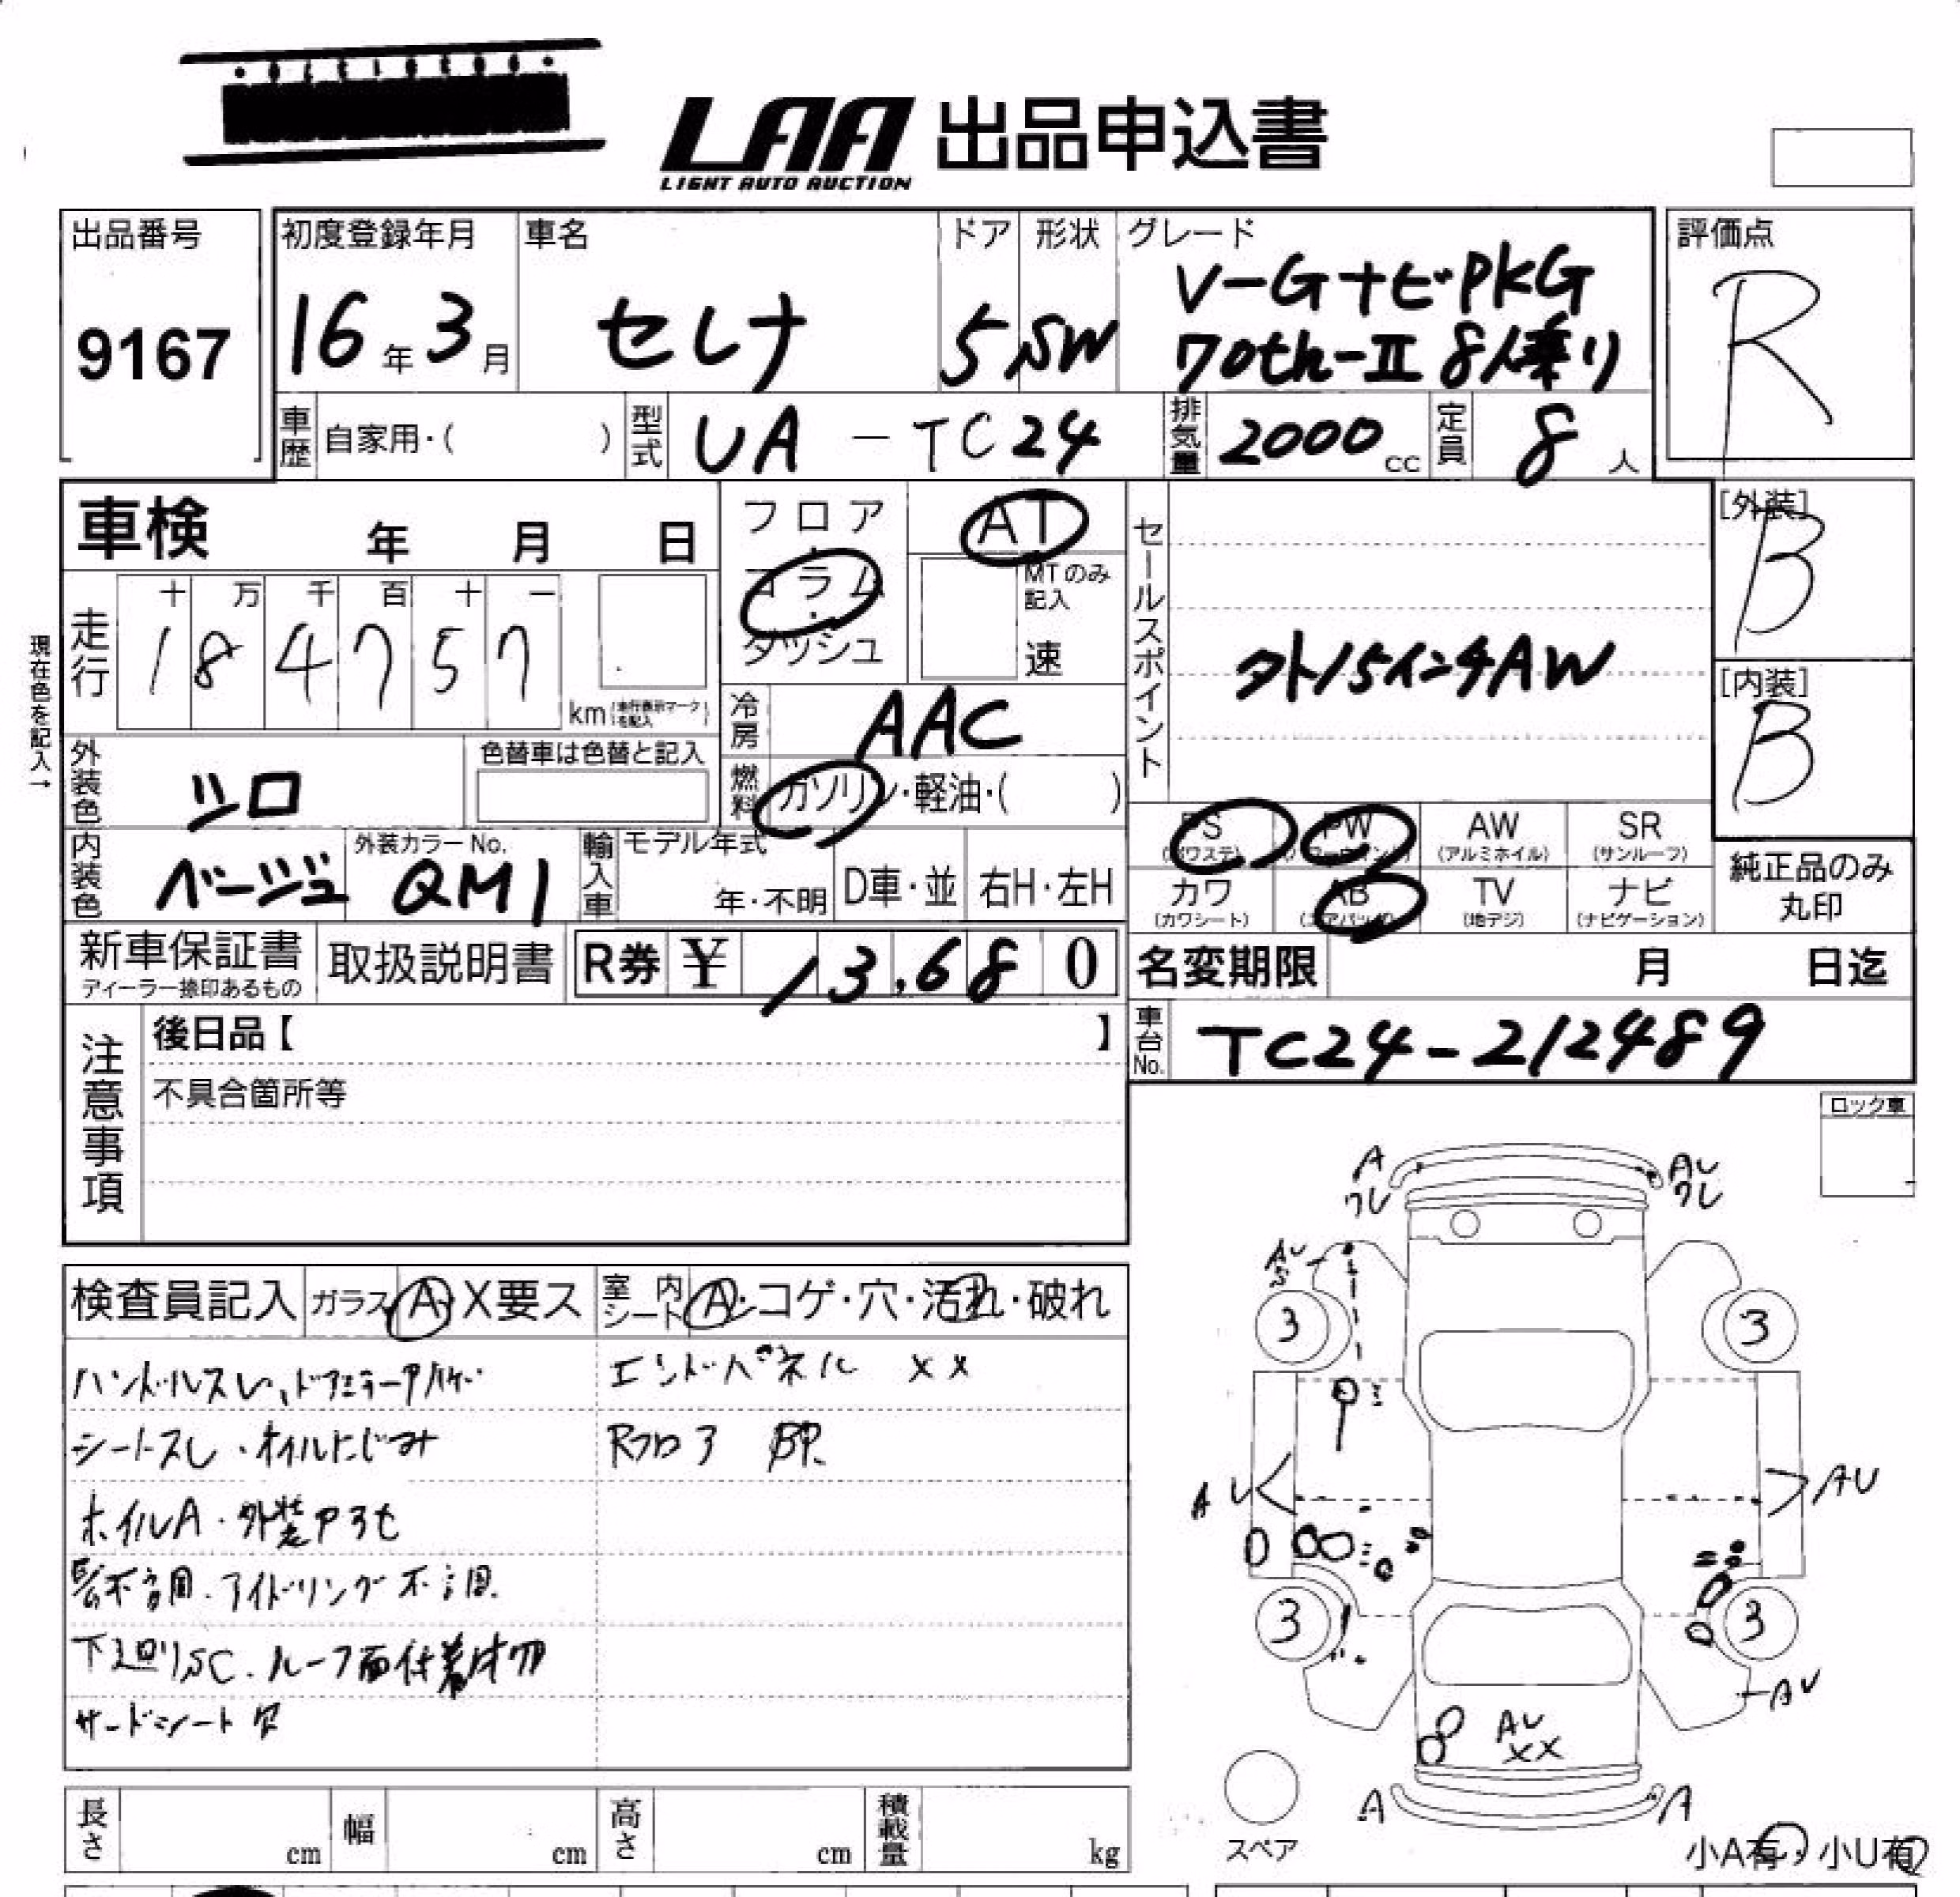 LAA 出品申込書
LIGHT AUTO AUCTION
出品番号
9167
初度登録年月
16年3月
車名
セレナ
ドア
5
形状
SW
グレード
V-GナビPKG
70th-II 8人乗り
評価点
R
車歴 自家用・( )
型式 UA-TC24
排気量 2000cc
定員 8人
車検 年 月 日
フロア・コラム・ダッシュ
AT
MTのみ記入
速
セールスポイント
外15インチAW
[外装]
B
[内装]
B
現在色を記入→
走行
十 万 千 百 十 一
1 8 4 7 5 7
km(走行表示マークを記入)
冷房 AAC
外装色 シロ
色替車は色替と記入
燃料 ガソリン・軽油・( )
内装色 ベージュ
外装カラーNo.
QM1
輸入車 モデル年式
年・不明
D車・並
右H・左H
PS
(パワステ)
PW
(パワーウインド)
AW
(アルミホイル)
SR
(サンルーフ)
カワ
(カワシート)
AB
(エアバッグ)
TV
(地デジ)
ナビ
(ナビゲーション)
純正品のみ
丸印
新車保証書
ディーラー捺印あるもの
取扱説明書
R券 ¥ 13,680
名変期限 月 日迄
注意事項
後日品【 】
不具合箇所等
車台No. TC24-212489
ロック車
検査員記入
ガラス A・X要ス
室内シート A・コゲ・穴・汚れ・破れ
ハンドルスレ、ドアミラーA
エンドパネル XX
シートスレ・オイルにじみ
Rフロア BP
ホイルA・外装
不調・アイドリング不調
下廻りSC・ルーフ面付着物
サードシート
A
ワレ
AU
ワレ
AU
S
3
3
AU
AU
3
3
AU
AU
XX
A
A
スペア
小A有・小U有
長さ cm
幅 cm
高さ cm
積載量 kg